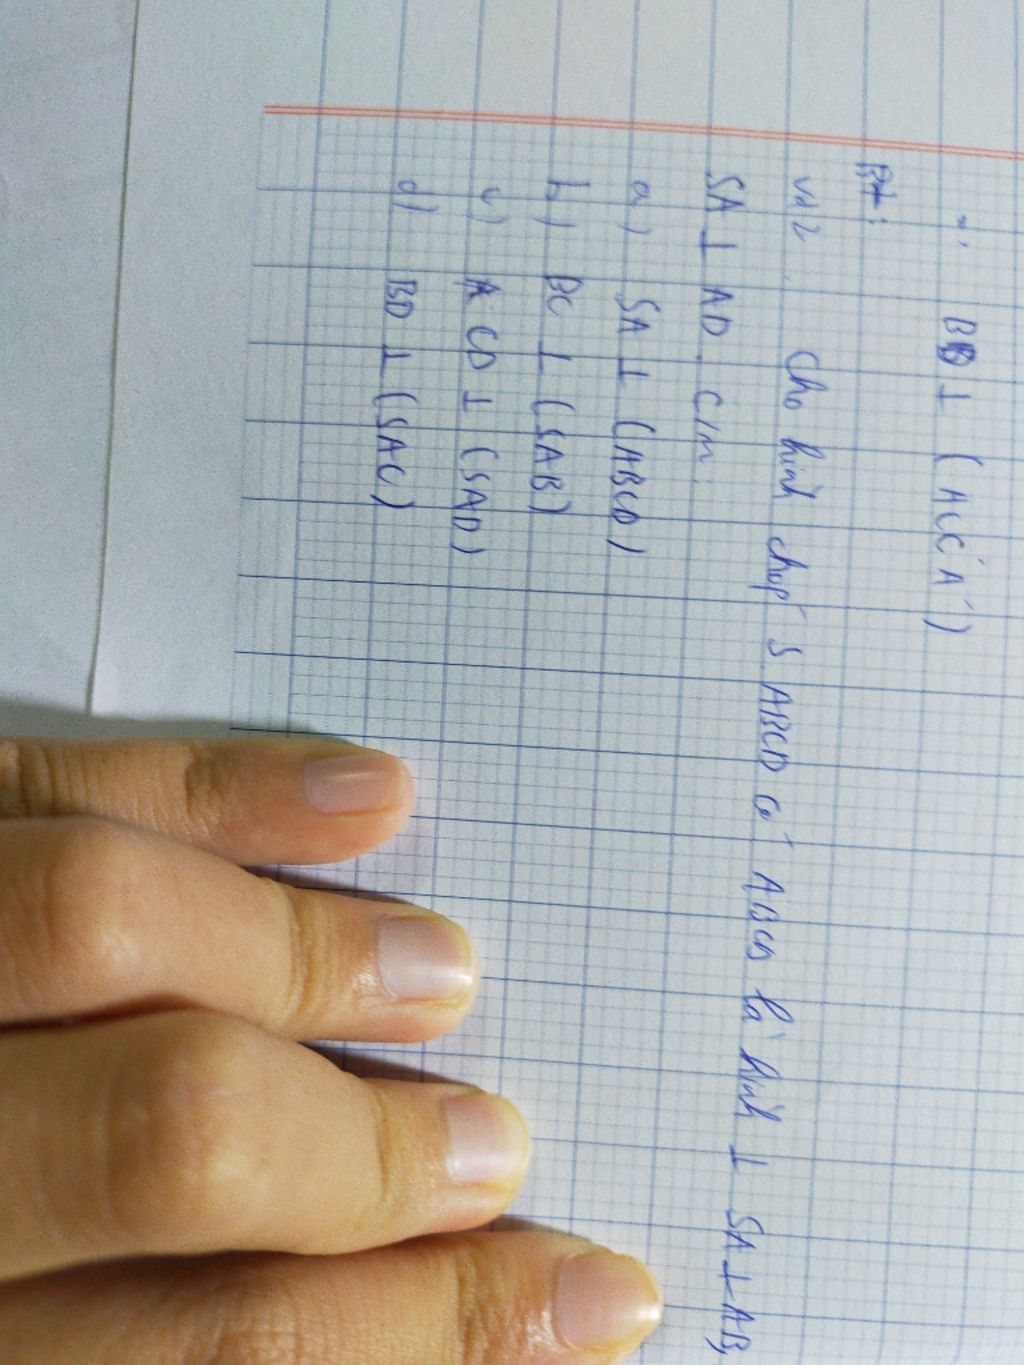 => BD ⊥ (ACC'A')
BT:
Vd2. Cho hình chóp S ABCD có ABCD là hình ⊥ SA ⊥ AB,
SA ⊥ AD. C/m:
a) SA ⊥ (ABCD)
b) BC ⊥ (SAB)
c) CD ⊥ (SAD)
d) BD ⊥ (SAC)